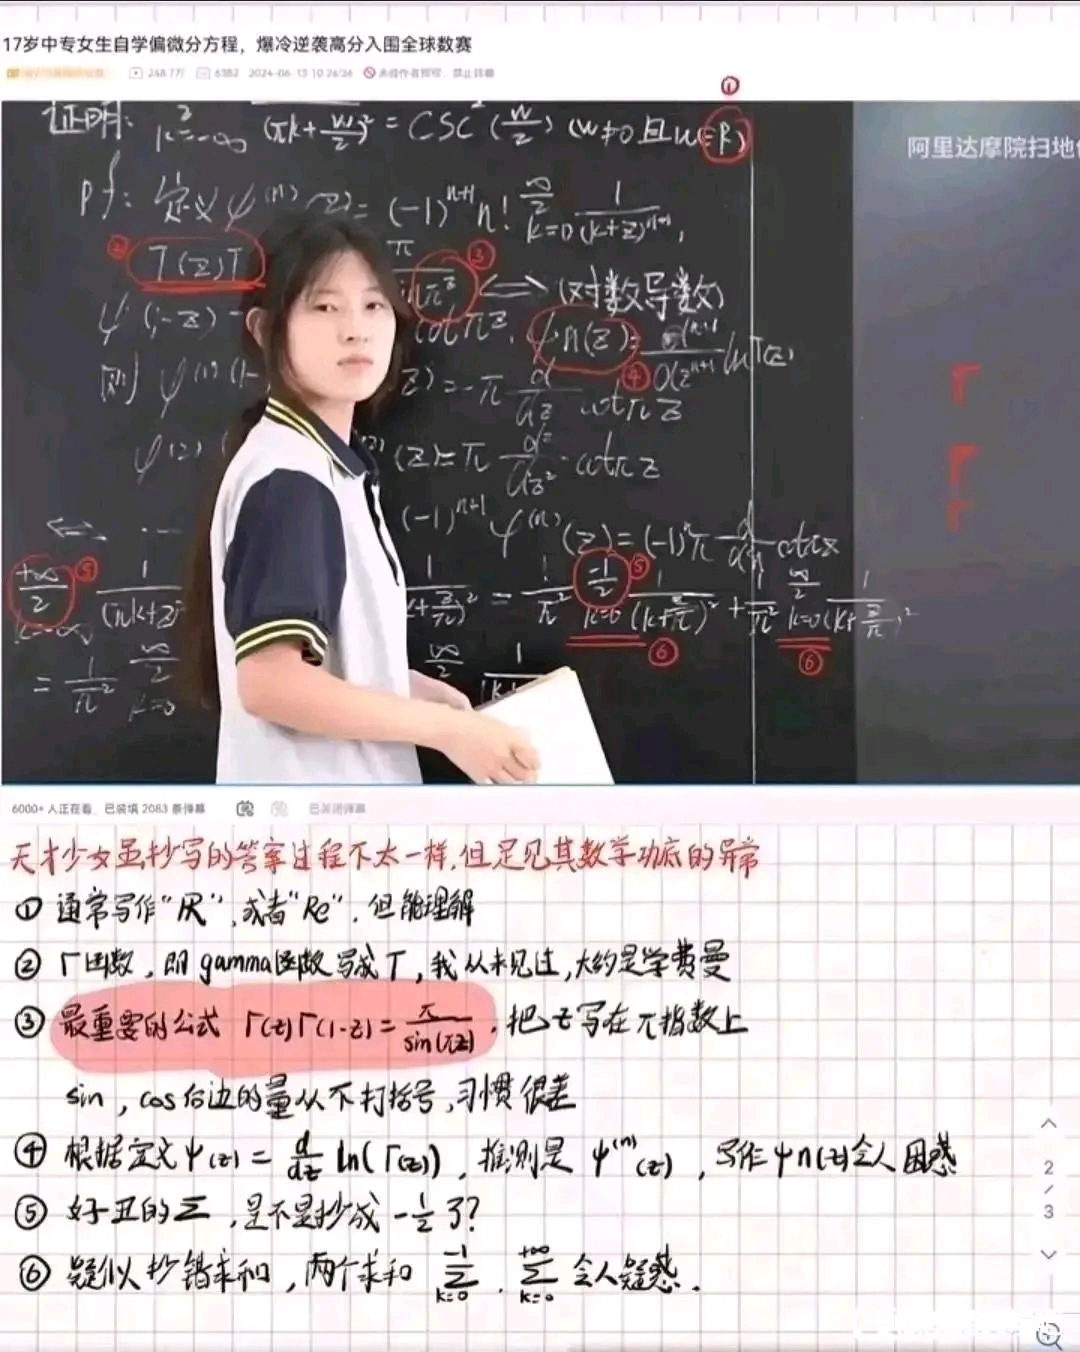 17岁中专女生自学偏微分方程，爆冷逆袭高分入围全球数赛
248.7万 6382 2024-06-13 10:24:34 未经作者授权，禁止转载
①
证明: ∞/2 k=-∞ 1/(πk+w/2)² = CSC²(w/2) (w≠0且w∈R)
阿里达摩院扫地
pf: 定义ψ⁽ⁿ⁾(z) = (-1)ⁿ⁺¹n! ∞/2 k=0 1/(k+z)ⁿ⁺¹,
② T(z)T π/sinπᶻ ③ ⟺ (对数导数)
ψ(1-z) - cotπz, ψn(z) = dⁿ⁺¹/dzⁿ⁺¹ lnT(z)
④
则 ψ⁽¹⁾(1- z) = -π d/dz cotπz
ψ⁽²⁾( (z) = π d²/dz² cotπz
⟺ ... (-1)ⁿ⁺¹ ψ⁽ⁿ⁾(z) = (-1)ⁿπ
+∞/2 ⑤ k=-∞ 1/(πk+z) 1/(k+z/π)² = 1/π² -1/2 ⑤ k=0 1/(k+z/π)² + 1/π² ∞/2 k=0 1/(k+z/π)²
⑥ ⑥
= 1/π² ∞/2 k=0 ∞/2 1/(k+
Γ
Γ
Γ
6000+ 人正在看，已装填 2083 条弹幕 已关闭弹幕
天才少女虽抄写的答案过程不太一样,但足见其数学功底的异常
① 通常写作“ℝ”,或者“Re”,但能理解
② Γ函数,即gamma函数写成T,我从未见过,大约是学费曼
③ 最重要的公式 Γ(z)Γ(1-z)=π/sin(πz),把z写在π指数上
sin,cos右边的量从不打括号,习惯很差
④ 根据定义ψ(z)=d/dz ln(Γ(z)),推测是ψ⁽ⁿ⁾(z),写作ψn(z)令人困惑
⑤ 好丑的Σ,是不是抄成-1/2了?
⑥ 疑似抄错求和,两个求和 -1 Σ k=0,+∞ Σ k=0 令人疑惑.
2
/
3